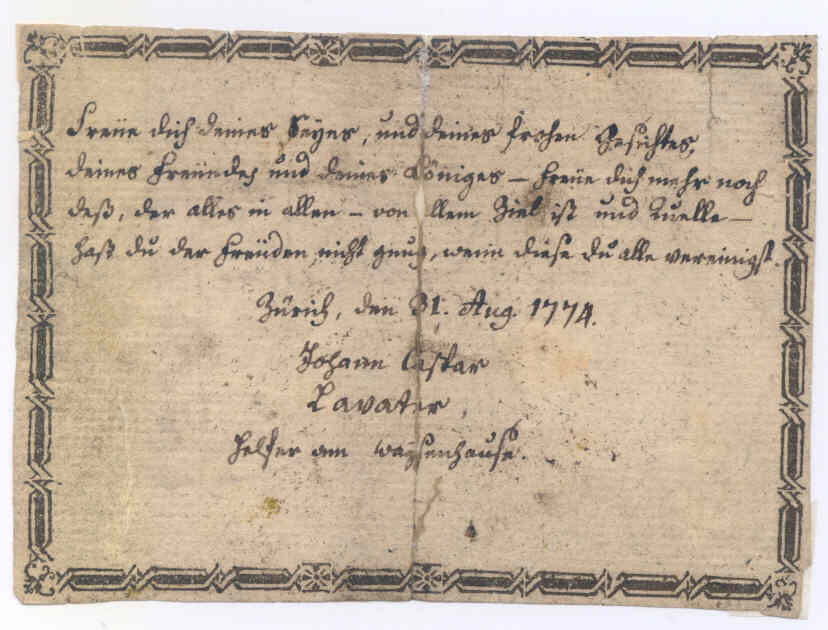 Freüe dich deines Seyns, und deines frohen Gesichtes,
deines Freündes und deines Königes – Freüe dich mehr noch
deß, der alles in allen – von allem Ziel ist und Quelle –
Hast du der Freüden nicht gnug, wenn diese du alle vereinigst.
Zürich, den 31. Aug. 1774.
Johann Caspar
Lavater,
Helfer am Waysenhause.